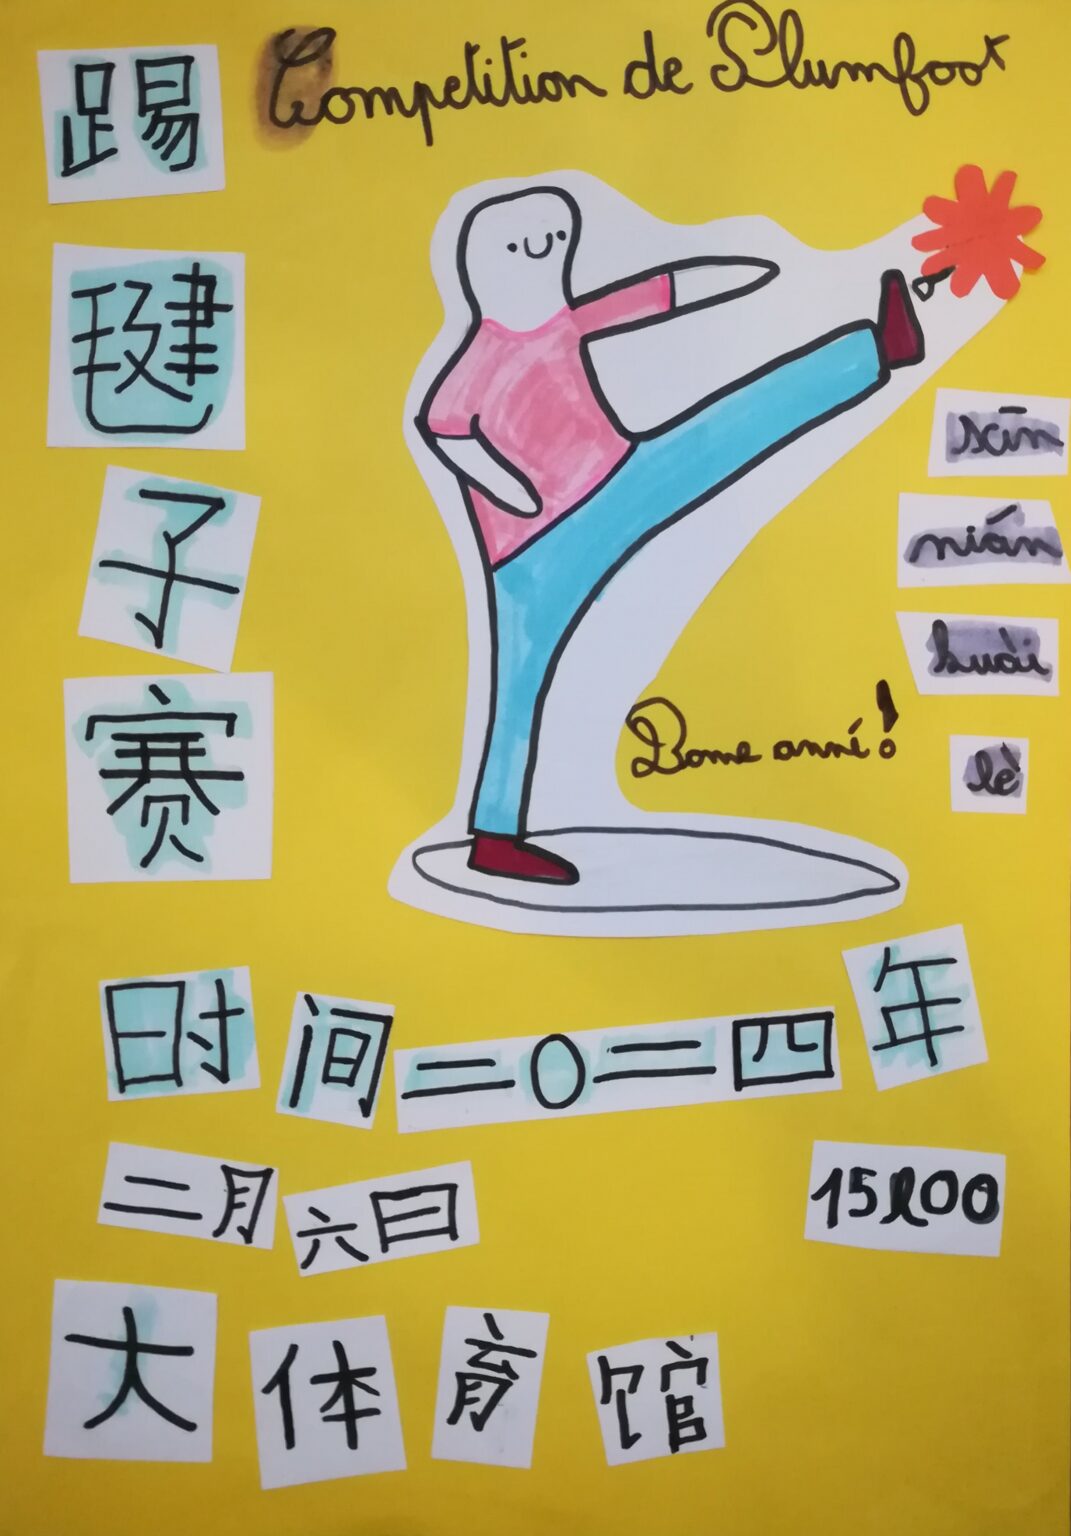 Competition de Plumfoot
踢
毽
子
赛
xīn
nián
kuài
lè
Bome année!
时间二〇二四年
二月六日
15h00
大体育馆